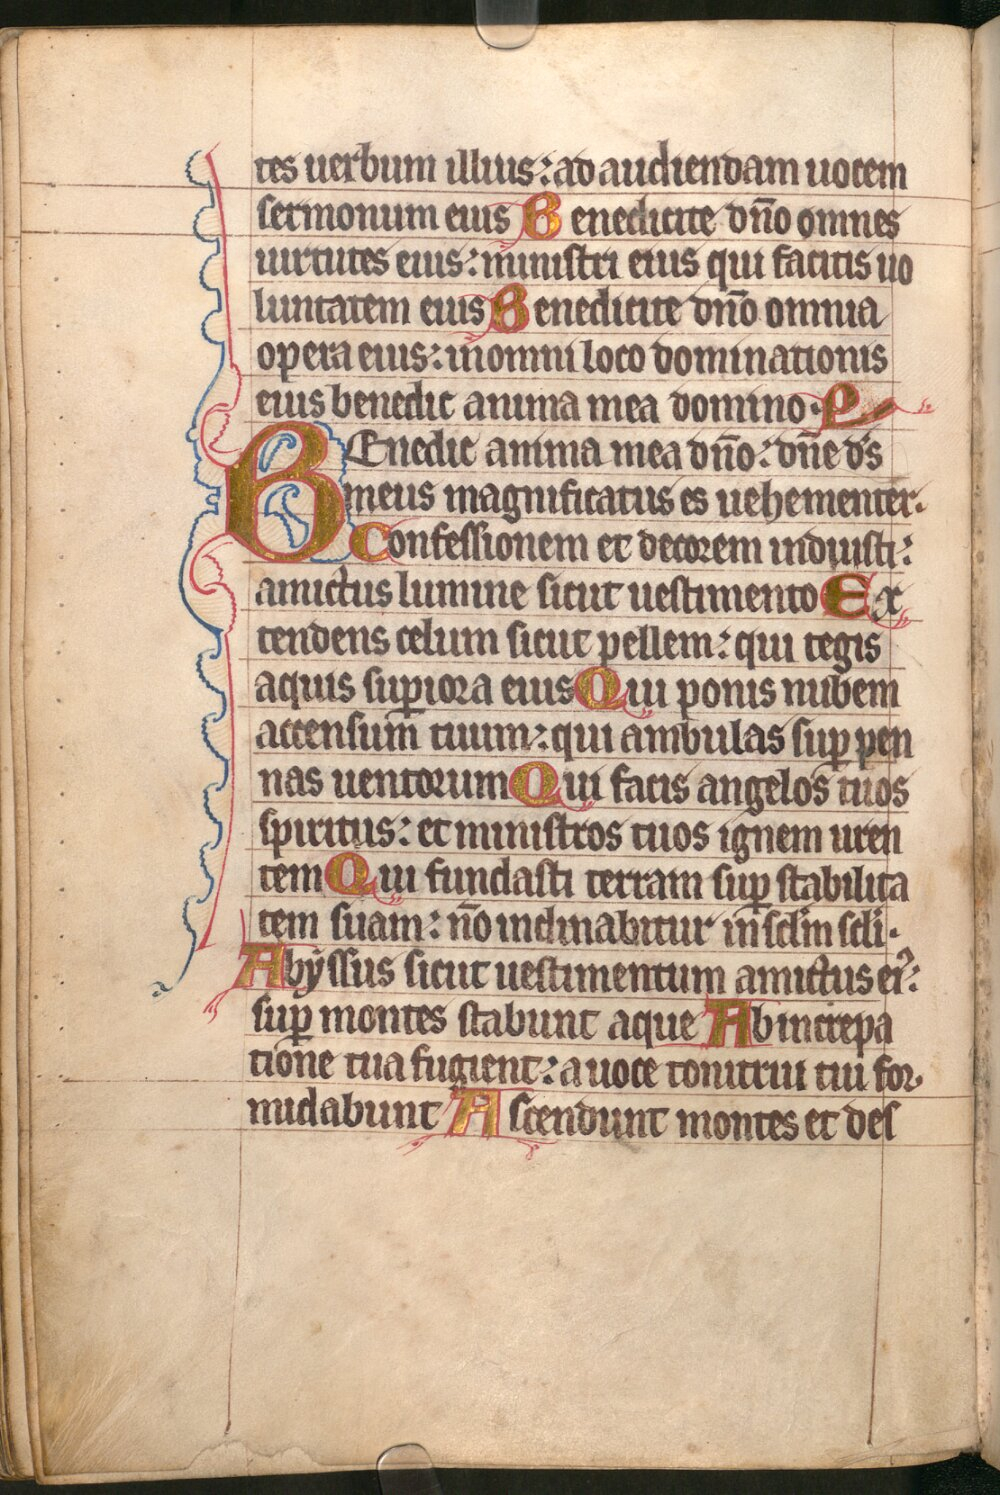 tes uerbum illius: ad audiendam uocem
sermonum eius Benedicite dño omnes
uirtutes eius: ministri eius qui facitis uo
luntatem eius Benedicite dño omnia
opera eius: in omni loco dominationis
eius benedic anima mea domino. P
BEnedic anima mea dño: dñe ds̄
meus magnificatus es uehementer.
Confessionem et decorem induisti:
amictus lumine sicut uestimento Ex
tendens celum sicut pellem: qui tegis
aquis sup̄iora eius Qui ponis nubem
accensum̄ tuum: qui ambulas sup̄ pen
nas uentorum Qui facis angelos tuos
spiritus: et ministros tuos ignem uren
tem Qui fundasti terram sup̄ stabilita
tem suam: ño inclinabitur in sclm̄ scli.
Abyssus sicut uestimentum amictus ei᾽:
sup̄ montes stabunt aque Ab increpa
tione tua fugient: a uoce tonitrui tui for
midabunt Ascendunt montes et des